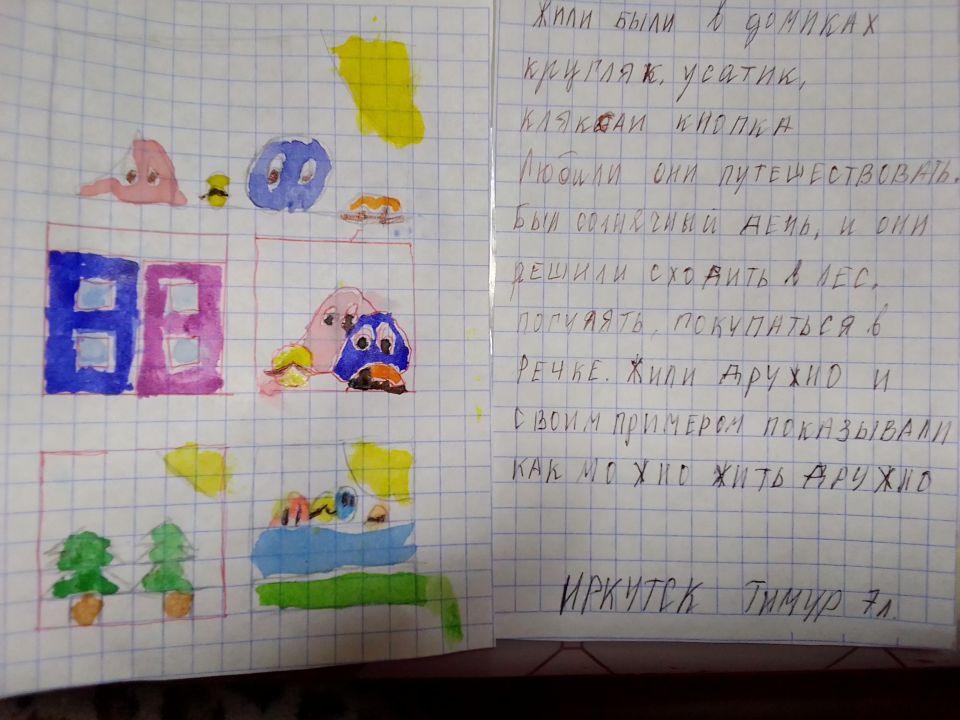 жили были в домиках
кругляк, усатик,
клякса и кнопка
Любили они путешествовать.
Был солнячный день, и они
решили сходить в лес,
погулять, покупаться в
речке. Жили дружно и
своим примером показывали
как можно жить дружно
Иркутск Тимур 7л.